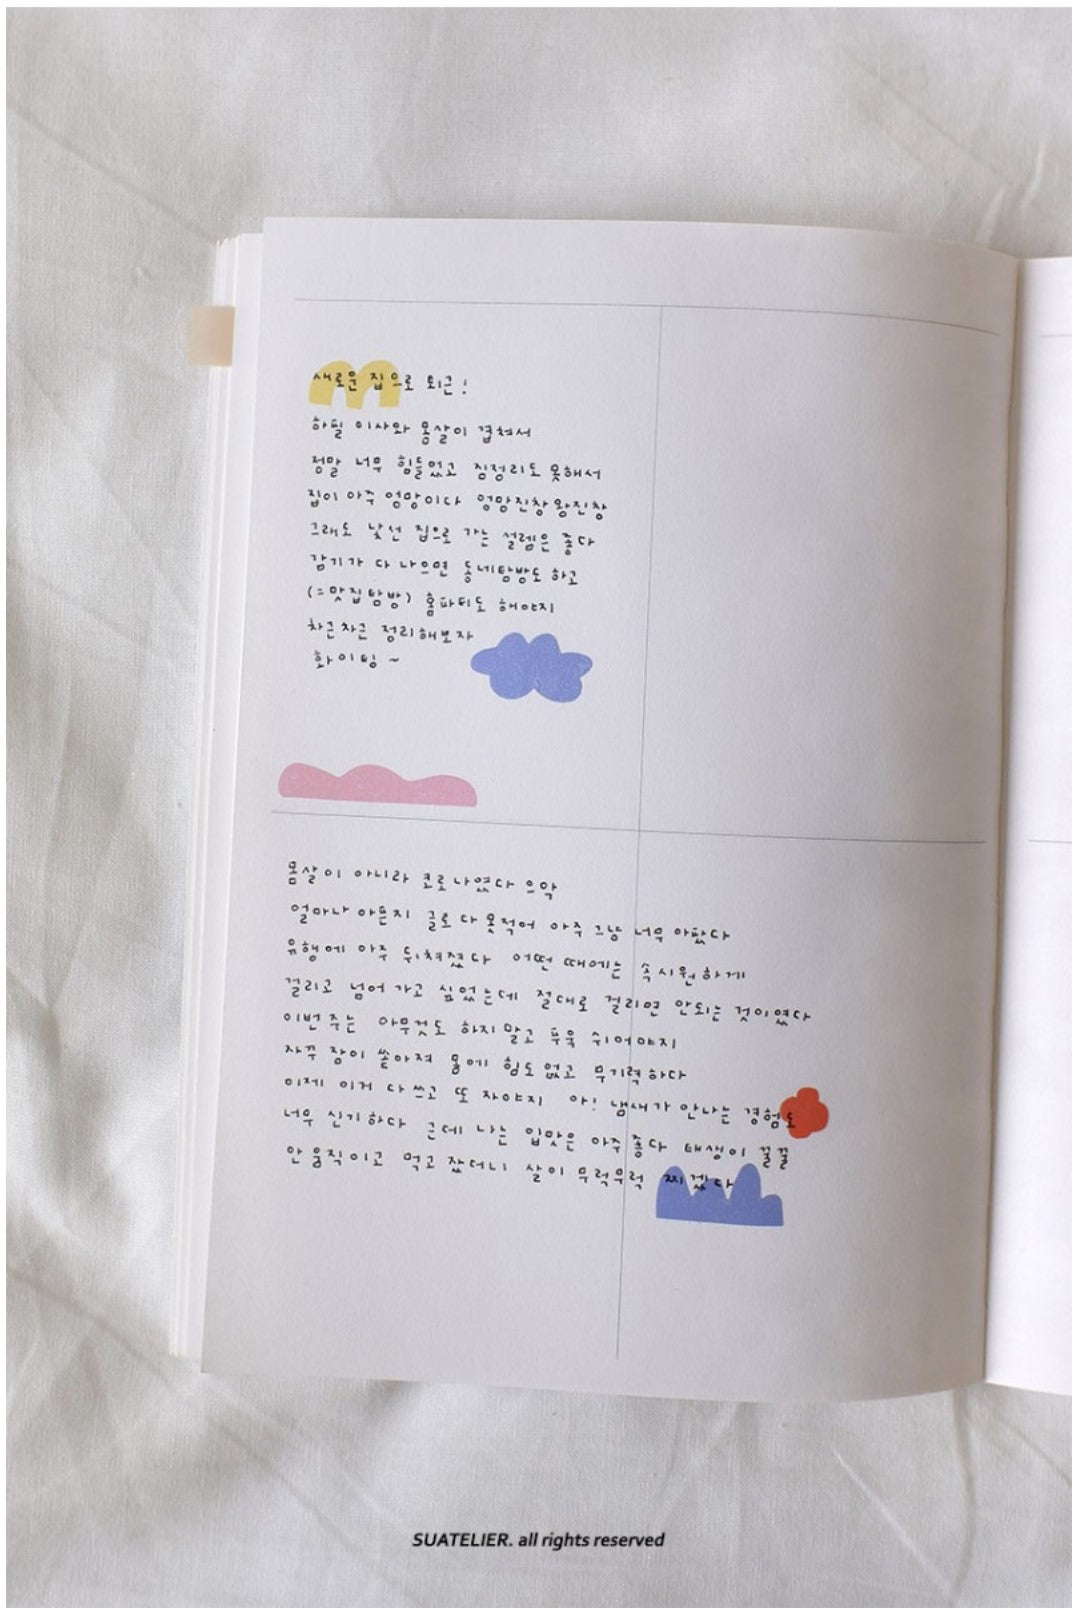 새로운 집으로 퇴근!
하필 이사와 몸살이 겹쳐서
정말 너무 힘들었고 짐정리도 못해서
집이 아주 엉망이다 엉망진창왕진창
그래도 낯선 집으로 가는 설렘은 좋다
감기가 다 나으면 동네탐방도 하고
(=맛집탐방) 홈파티도 해야지
차근차근 정리해보자
화이팅~
몸살이 아니라 코로나였다 으악
얼마나 아픈지 글로 다 못적어 아주 그냥 너무 아팠다
유행에 아주 뒤쳐졌다 어떤 때에는 속시원하게
걸리고 넘어가고 싶었는데 절대로 걸리면 안되는 것이였다
이번주는 아무것도 하지말고 푸욱 쉬어야지
자꾸 잠이 쏟아져 몸에 힘도 없고 무기력하다
이제 이거 다쓰고 또 자야지 아! 냄새가 안나는 경험도
너무 신기하다 근데 나는 입맛은 아주 좋다 태생이 꿀꿀
안움직이고 먹고 잤더니 살이 무럭무럭 찌겠다
SUATELIER. all rights reserved